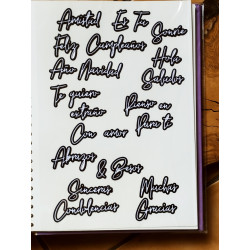 Amistad Es Tu
Sonríe
Feliz Cumpleaños
Hola
Año Navidad
Saludos
Te quiero
Pienso en
extraño
Para ti
Con amor
Abrazos
& Besos
Sinceras Muchas
Condolencias Gracias